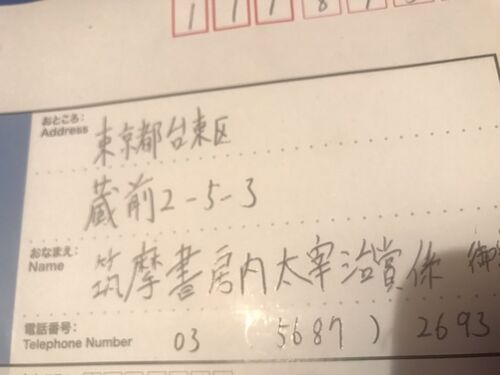 おところ:
Address
東京都台東区
蔵前2-5-3
おなまえ:
Name
筑摩書房内太宰治賞係 御
電話番号:
Telephone Number
03 5687 ) 2693